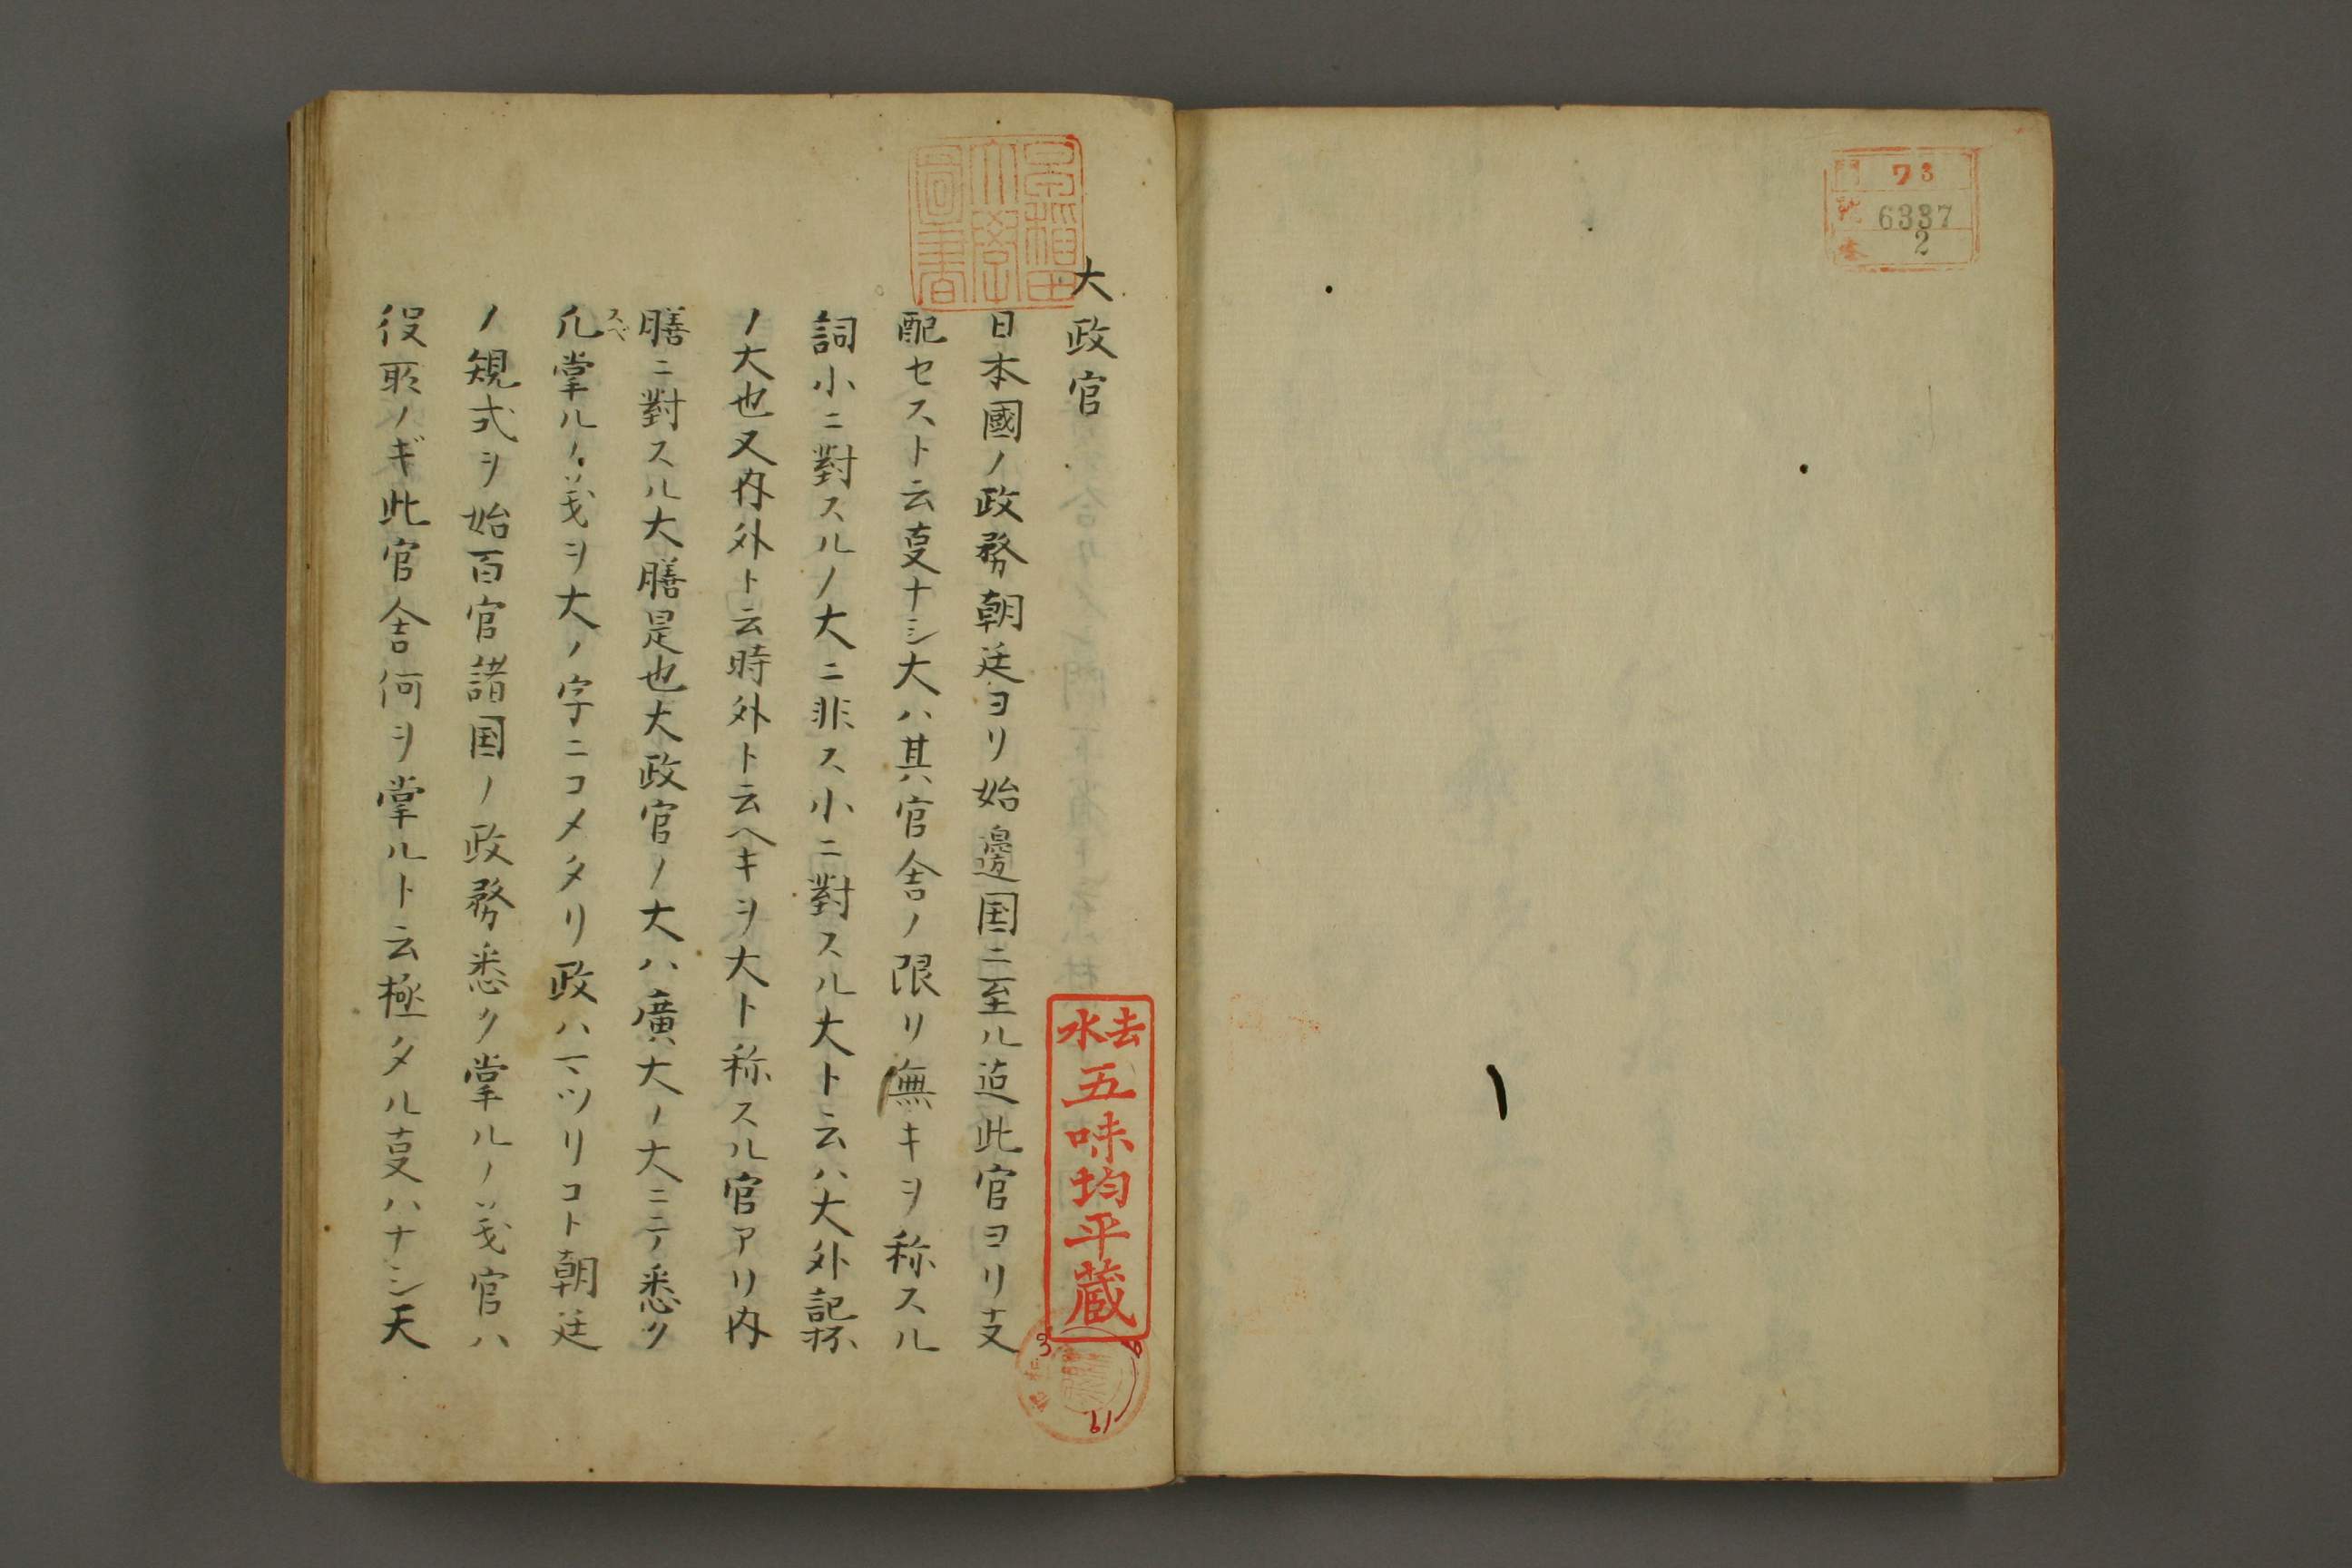 門 73
號 6337
卷 2
早稲田
大學
圖書
大政官
日本國ノ政務朝廷ヨリ始邊国ニ至ル迠此官ヨリ支
配セスト云㕝ナシ大ハ其官舎ノ限リ無キヲ称スル
詞小ニ對スルノ大ニ非ス小ニ對スル大ト云ハ大外記杯
ノ大也又内外ト云時外ト云ヘキヲ大ト称スル官アリ内
膳ニ對スル大膳是也大政官ノ大ハ廣大ノ大ニテ悉ク
スベ
凡掌ルノ義ヲ大ノ字ニコメタリ政ハマツリコト朝廷
ノ規式ヲ始百官諸国ノ政務悉ク掌ルノ義官ハ
役所ノギ此官舎何ヲ掌ルト云極タル㕝ハナシ天
去水
五味均平蔵